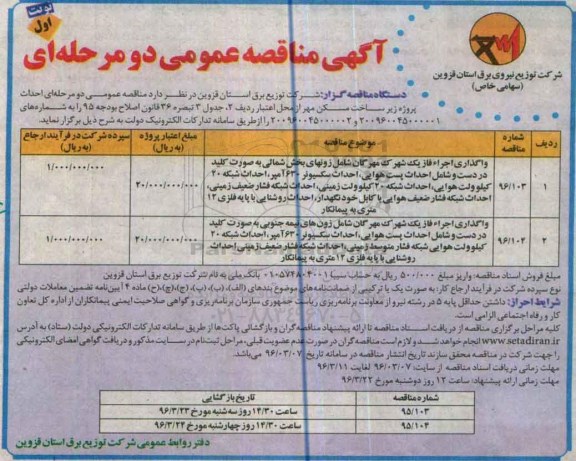 نوبت اول
آگهی مناقصه عمومی دو مرحله‌ای
شرکت توزیع نیروی برق استان قزوین
(سهامی خاص)
دستگاه مناقصه گزار: شرکت توزیع برق استان قزوین در نظر دارد مناقصه عمومی دو مرحله‌ای احداث
پروژه زیر ساخت مسکن مهر از محل اعتبار ردیف ۲، جدول ۳ تبصره ۳۶ قانون اصلاح بودجه ۹۵ را به شماره‌های
۲۰۰۹۶۰۰۴۵۰۰۰۰۰۱ و ۲۰۰۹۶۰۰۴۵۰۰۰۰۰۲ را از طریق سامانه تدارکات الکترونیک دولت به شرح ذیل برگزار نماید.
ردیف شماره مناقصه موضوع مناقصه مبلغ اعتبار پروژه (به ریال) سپرده شرکت در فرآیند ارجاع (به ریال)
واگذاری اجراء فاز یک شهرک مهرگان شامل زونهای بخش شمالی به صورت کلید
در دست و شامل احداث پست هوایی، احداث سکسیونر ۶۳۰ آمپر، احداث شبکه ۲۰
۱ ۹۶/۱۰۳ کیلوولت هوایی، احداث شبکه ۲۰ کیلوولت زمینی، احداث شبکه فشار ضعیف زمینی، ۲۰/۰۰۰/۰۰۰/۰۰۰ ۱/۰۰۰/۰۰۰/۰۰۰
احداث شبکه فشار ضعیف هوایی با کابل خودنگهدار، احداث روشنایی با پایه فلزی ۱۲
متری به پیمانکار
واگذاری اجراء فاز یک شهرک مهرگان شامل زون‌های نیمه جنوبی به صورت کلید
در دست و شامل احداث پست هوایی، احداث سکسیونر ۶۳۰ آمپر، احداث شبکه ۲۰
۲ ۹۶/۱۰۴ کیلوولت هوایی شبکه فشار متوسط زمینی، احداث شبکه فشار ضعیف زمینی، احداث ۲۰/۰۰۰/۰۰۰/۰۰۰ ۱/۰۰۰/۰۰۰/۰۰۰
روشنایی با پایه فلزی ۱۲ متری به پیمانکار
مبلغ فروش اسناد مناقصه: واریز مبلغ ۵۰۰/۰۰۰ ریال به حساب سیبا ۰۱۰۵۷۴۸۰۴۰۰۱ بانک ملی به نام شرکت توزیع برق استان قزوین
نوع سپرده شرکت در فرآیند ارجاع کار: به صورت یک یا ترکیبی از ضمانت‌نامه‌های موضوع بندهای (الف)، (ب)، (پ)، (ج)، (چ)، (ح) ماده ۴ آیین‌نامه تضمین معاملات دولتی
شرایط احراز: داشتن حداقل پایه ۵ در رشته نیرو از معاونت برنامه‌ریزی ریاست جمهوری سازمان برنامه‌ریزی و گواهی صلاحیت ایمنی پیمانکاران از اداره کل تعاون
کار و رفاه اجتماعی الزامی است.
کلیه مراحل برگزاری مناقصه از دریافت اسناد مناقصه تا ارائه پیشنهاد مناقصه‌گران و بازگشائی پاکت‌ها از طریق سامانه تدارکات الکترونیکی دولت (ستاد) به آدرس
www.setadiran.ir انجام خواهد شد و لازم است مناقصه‌گران در صورت عدم عضویت قبلی، مراحل ثبت‌نام در سایت مذکور و دریافت گواهی امضای الکترونیکی
را جهت شرکت در مناقصه محقق سازند تاریخ انتشار مناقصه در سامانه تاریخ ۹۶/۰۳/۰۷ می‌باشد.
مهلت زمانی دریافت اسناد مناقصه از سایت: ۹۶/۰۳/۰۷ لغایت ۹۶/۳/۱۱
مهلت زمانی ارائه پیشنهاد: ساعت ۱۲ روز دوشنبه مورخ ۹۶/۳/۲۲
شماره مناقصه تاریخ بازگشایی
۹۵/۱۰۳ ساعت ۱۴/۳۰ روز سه‌شنبه مورخ ۹۶/۳/۲۳
۹۵/۱۰۴ ساعت ۱۴/۳۰ روز چهارشنبه مورخ ۹۶/۳/۲۴
دفتر روابط عمومی شرکت توزیع برق استان قزوین